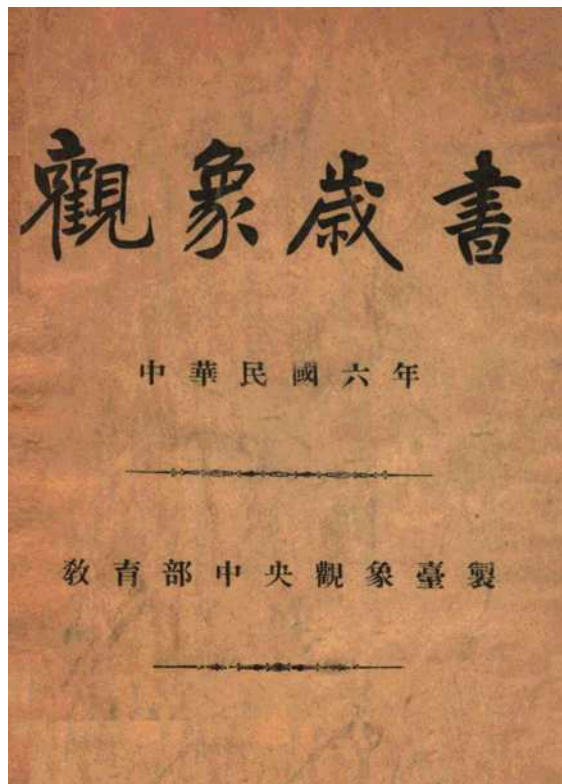 觀象歲書
中華民國六年
教育部中央觀象臺製